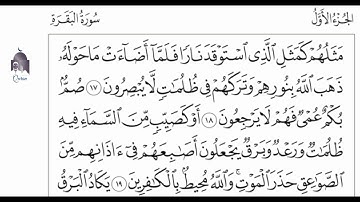 الجزء الأول سورة البقرة
مَثَلُهُمْ كَمَثَلِ الَّذِي اسْتَوْقَدَ نَارًا فَلَمَّا أَضَاءَتْ مَا حَوْلَهُ
ذَهَبَ اللَّهُ بِنُورِهِمْ وَتَرَكَهُمْ فِي ظُلُمَاتٍ لَّا يُبْصِرُونَ ١٧ صُمٌّ
بُكْمٌ عُمْيٌ فَهُمْ لَا يَرْجِعُونَ ١٨ أَوْ كَصَيِّبٍ مِّنَ السَّمَاءِ فِيهِ
ظُلُمَاتٌ وَرَعْدٌ وَبَرْقٌ يَجْعَلُونَ أَصَابِعَهُمْ فِي ءَاذَانِهِم مِّنَ
الصَّوَاعِقِ حَذَرَ الْمَوْتِ وَاللَّهُ مُحِيطٌ بِالْكَافِرِينَ ١٩ يَكَادُ الْبَرْقُ